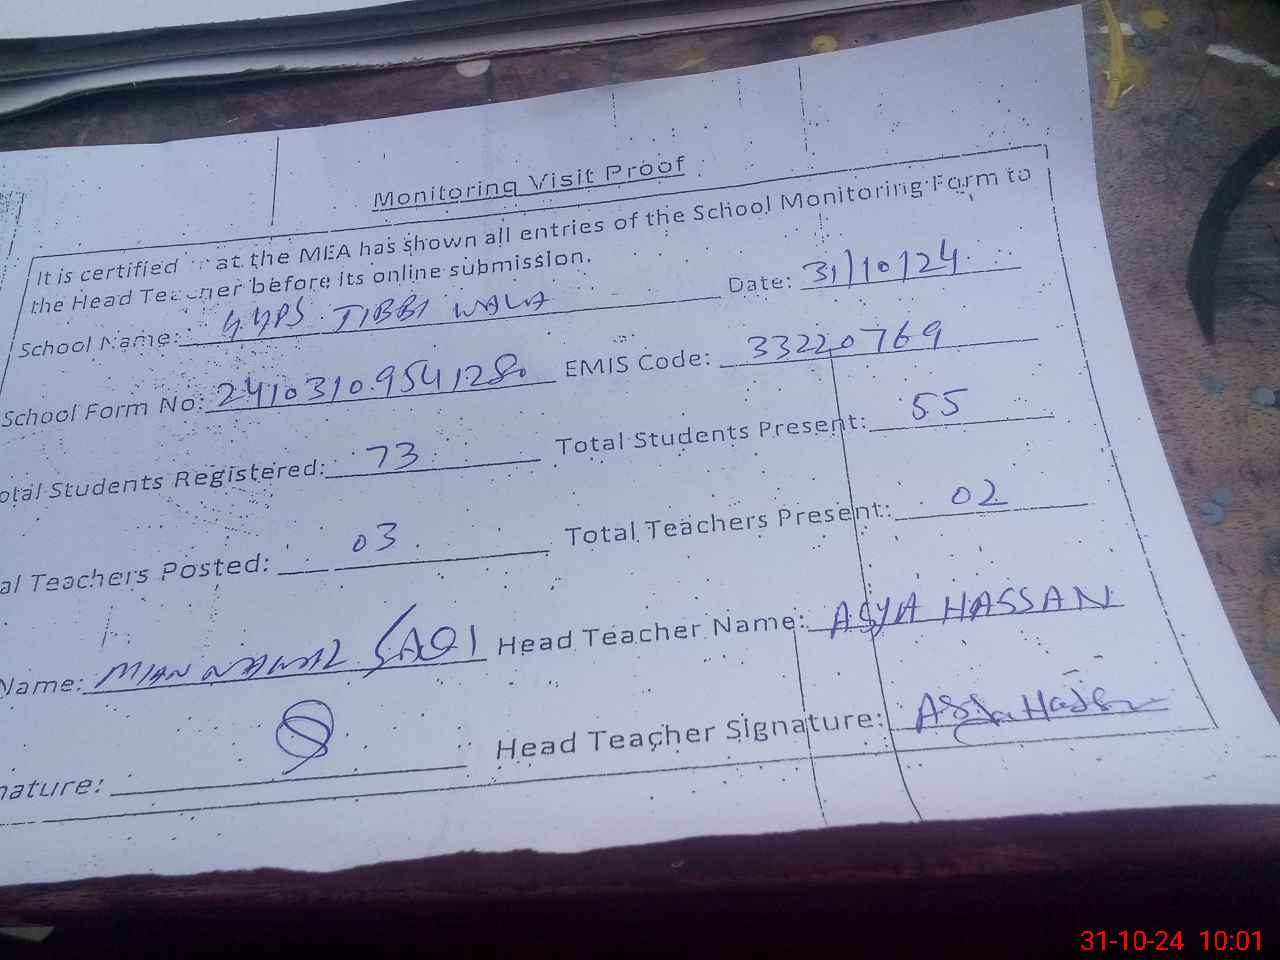 Monitoring Visit Proof
It is certified at the MEA has shown all entries of the School Monitoring Form to
the Head Teacher before its online submission.
School Name: GGPS TIBBI WALA Date: 31/10/24
School Form No: 2410310954128 EMIS Code: 33220769
otal Students Registered: 73 Total Students Present: 55
al Teachers Posted: 03 Total Teachers Present: 02
Name: MIAN NAWAZ SAQI Head Teacher Name: ASYA HASSAN
nature: Head Teacher Signature: Asya Hassan
31-10-24 10:01